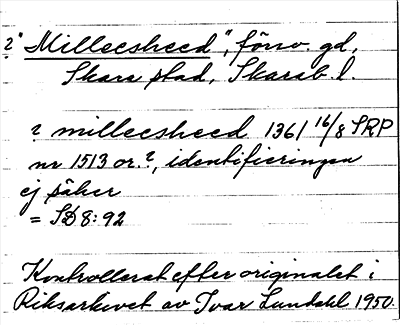 ? "Millecsheed", försv. gd,
Skara stad, Skarab. l.
? millecsheed 1361 16/8 SRP
nr 1513 or. ?, identifieringen
ej säker
= SD 8:92
Kontrollerat efter originalet i
Riksarkivet av Ivar Lundahl 1950.